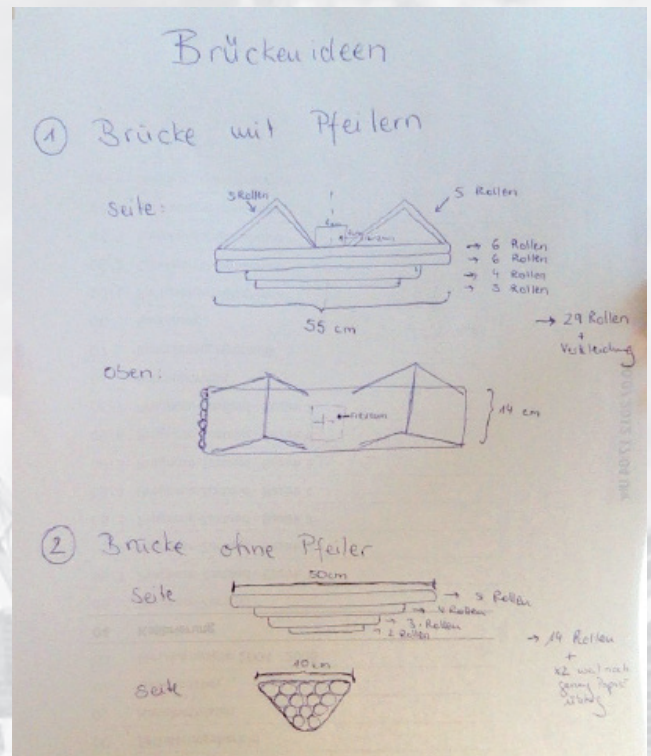 Brückenideen
① Brücke mit Pfeilern
Seite:
5 Rollen
5 Rollen
→ 6 Rollen
→ 6 Rollen
→ 4 Rollen
→ 3 Rollen
55 cm
→ 29 Rollen
+
Verkleidung
Oben:
14 cm
② Brücke ohne Pfeiler
50cm
Seite
→ 5 Rollen
→ 4 Rollen
→ 3 Rollen
→ 2 Rollen
→ 14 Rollen
+
10 cm
Seite